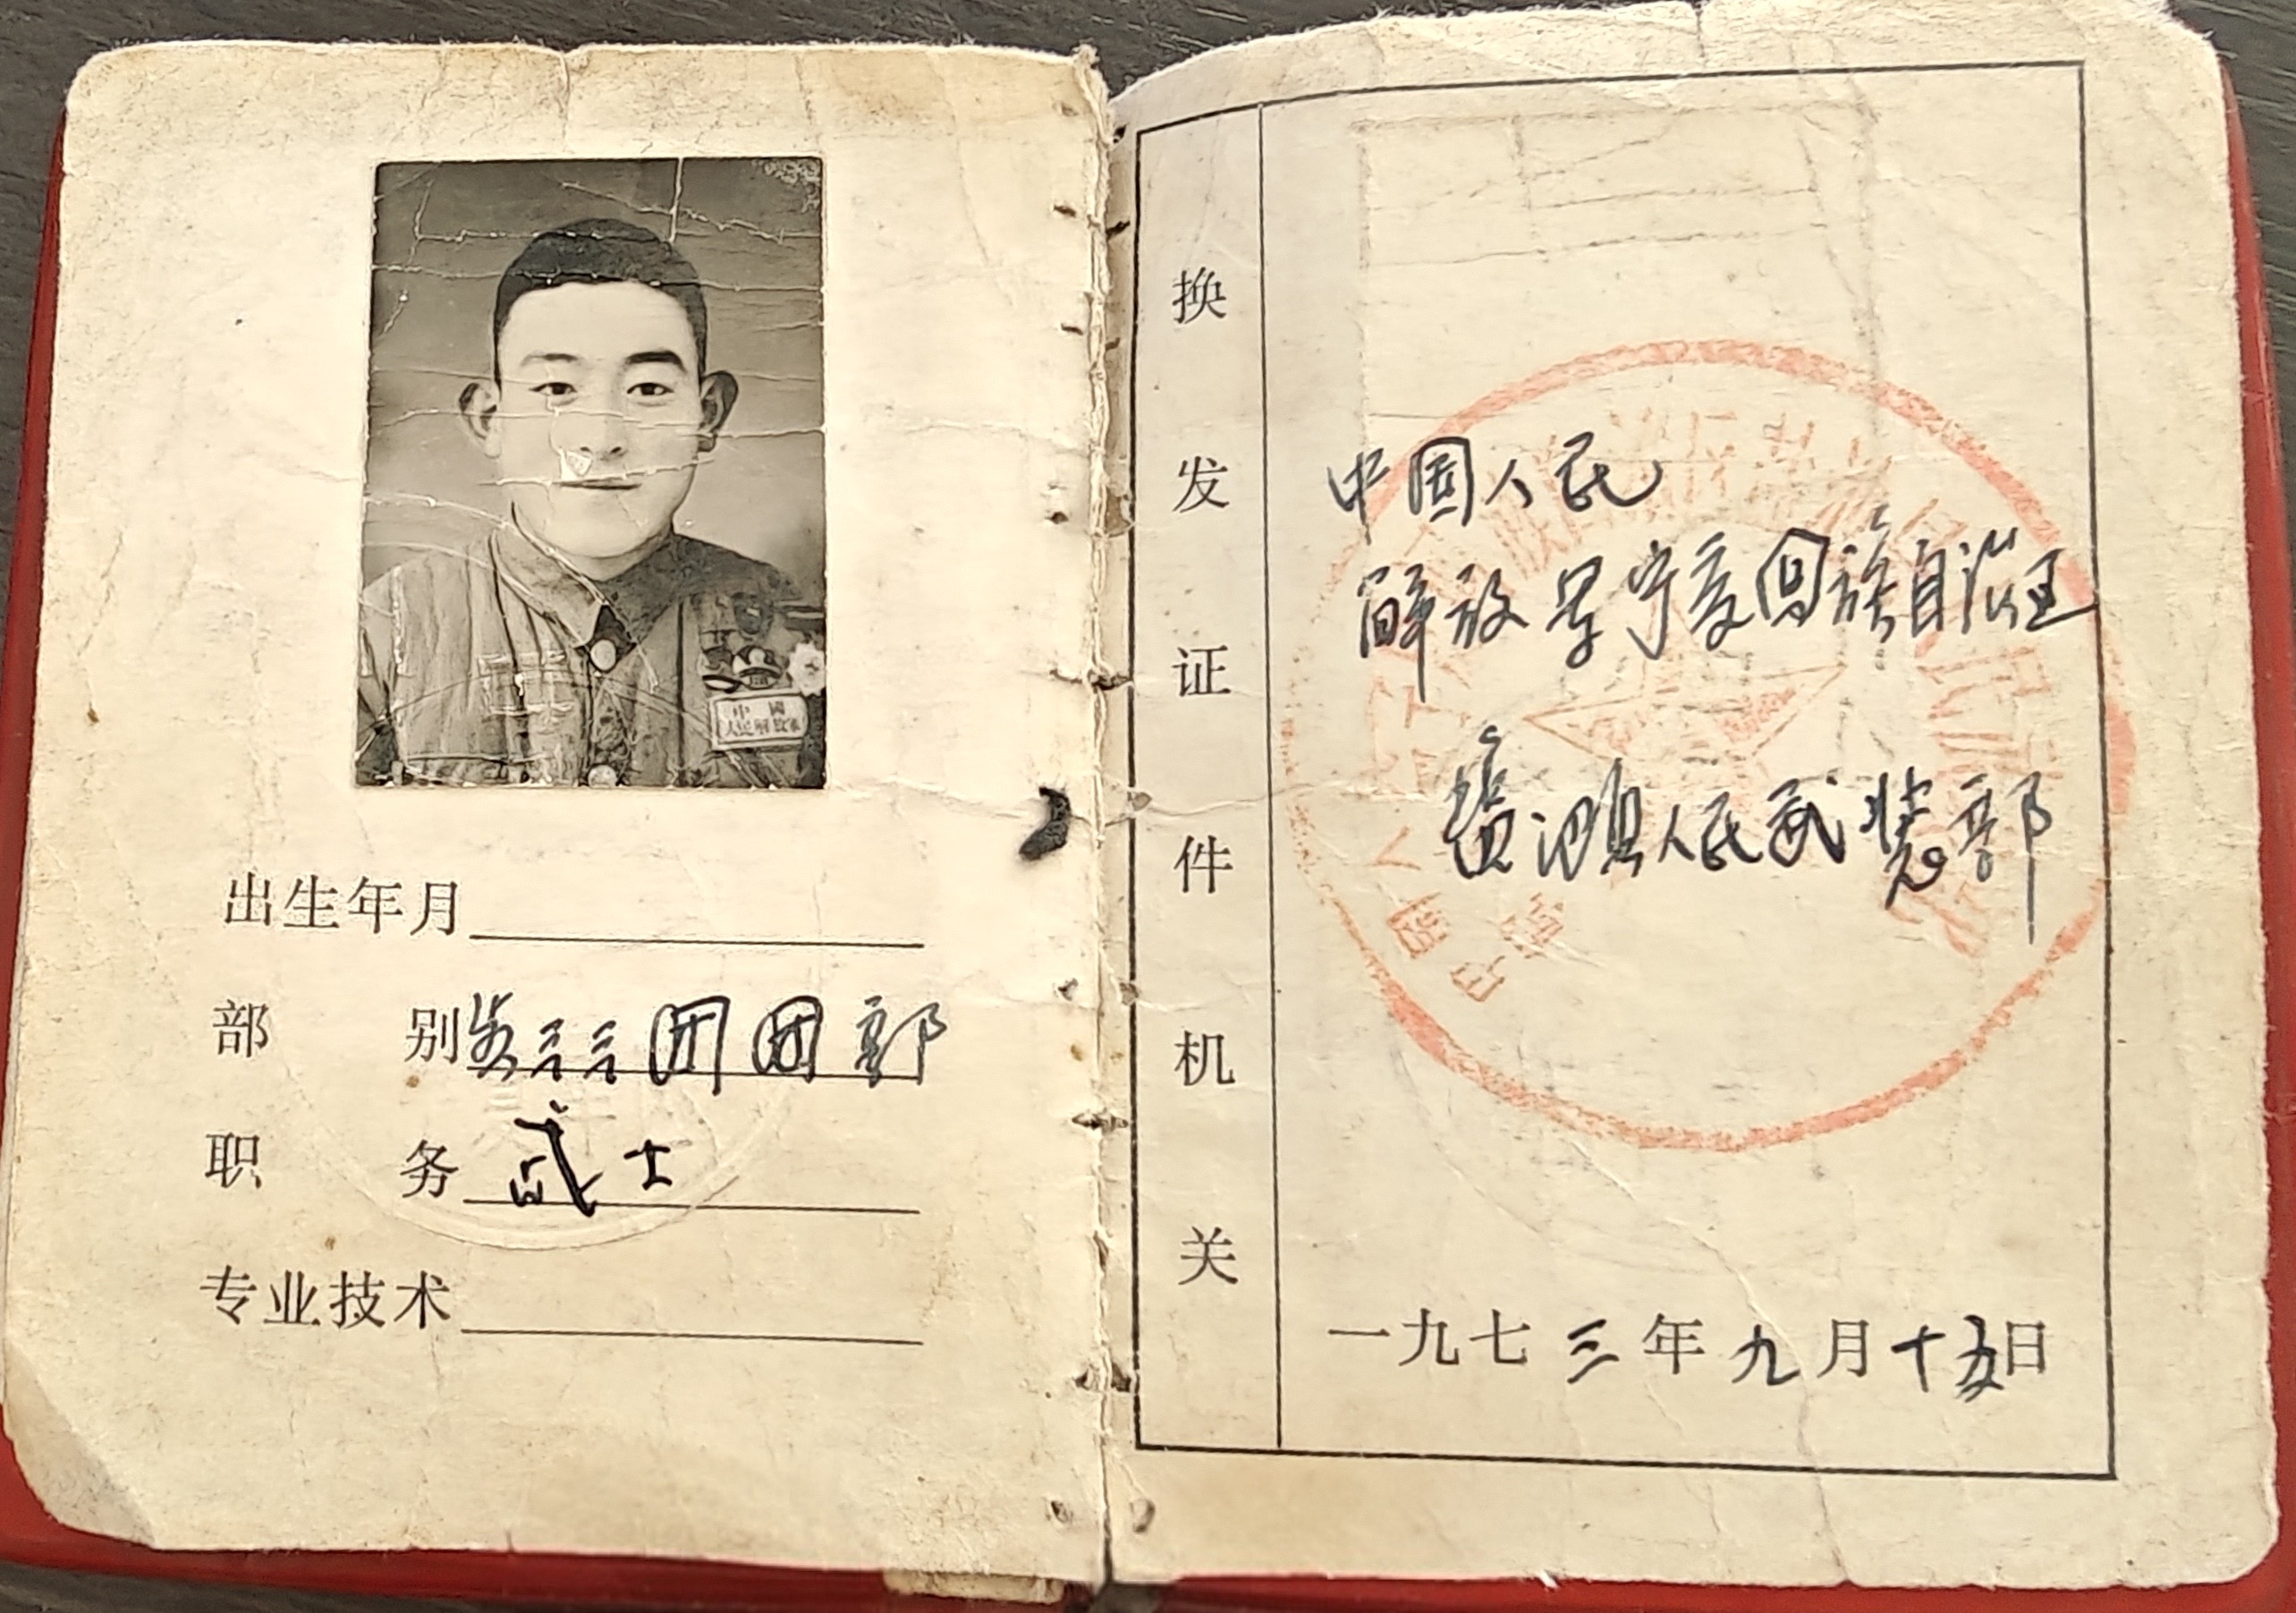 中國
人民解放軍
出生年月
部 别 团团部
职 务 武士
专业技术
换发证件机关
中国人民
解放军宁夏回族自治区
盐池县人民武装部
一九七三年九月十五日